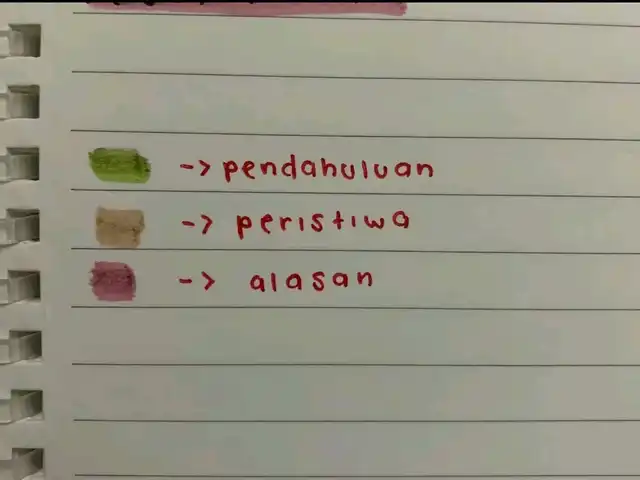 -> pendahuluan
-> peristiwa
-> alasan